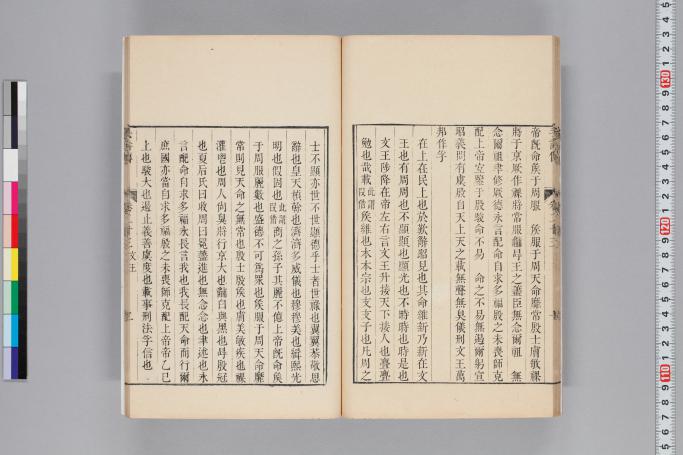 帝既命矦于周服　矦服于周天命靡常殷士膚敏祼
將于京厥作祼將常服黼冔王之藎臣無念爾祖　無
念爾祖聿修厥德永言配命自求多福殷之未喪師克
配上帝宜鑒于殷駿命不易　命之不易無遏爾躬宣
昭義問有虞殷自天上天之載無聲無臭儀刑文王萬
邦作孚
在上在民上也於歎辭昭見也其命維新乃新在文
王也有周周也不顯顯也顯光也不時時也時是也
文王陟降在帝左右言文王升接天下接人也亹亹
勉也哉載此謂叚借矦維也本本宗也支支子也凡周之
士不顯亦世不世顯德乎士者世祿也翼翼恭敬思
辭也皇天楨榦也濟濟多威儀也穆穆美也緝熙光
明也假固也此謂叚借商之孫子其麗不億上帝既命矦
于周服麗數也盛德不可爲衆也矦服于周天命靡
常則見天命之無常也殷士殷矦也膚美敏疾也祼
灌鬯也周人尚臭將行京大也黼白與黑也冔殷冠
也夏后氏曰收周曰冕藎進也無念念也聿述也永
言配命自求多福永長言我也我長配天命而行爾
庶國亦當自求多福殷之未喪師克配上帝帝乙已
上也駿大也遏止義善虞度也載事刑法孚信也
文王